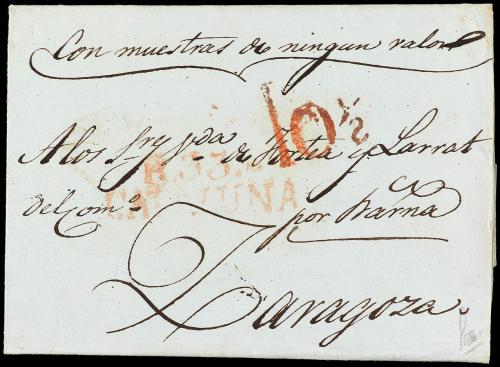 Con muestras de ningun valor
10½
A los Sres Vda de Hortea y Larrat
del Como por Barna
CATALUÑA
Zaragoza.